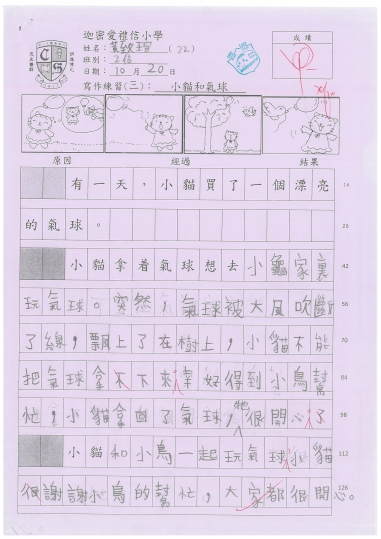 迦密愛禮信小學
姓名：
（22）
班別：2信
日期：10月20日
成績
寫作練習(三)：小貓和氣球
原因 經過 結果
有一天，小貓買了一個漂亮 14
的氣球。 28
小貓拿着氣球想去小龜家裏 42
玩氣球。突然，氣球被大風吹斷 56
了線，飄上了在樹上，小貓不能 70
把氣球拿不下來幸好得到小鳥幫 84
忙，小貓拿回了氣球，牠很開心了 98
小貓和小鳥一起玩氣球小貓 112
很謝謝小鳥的幫忙，大家都很開心。 126